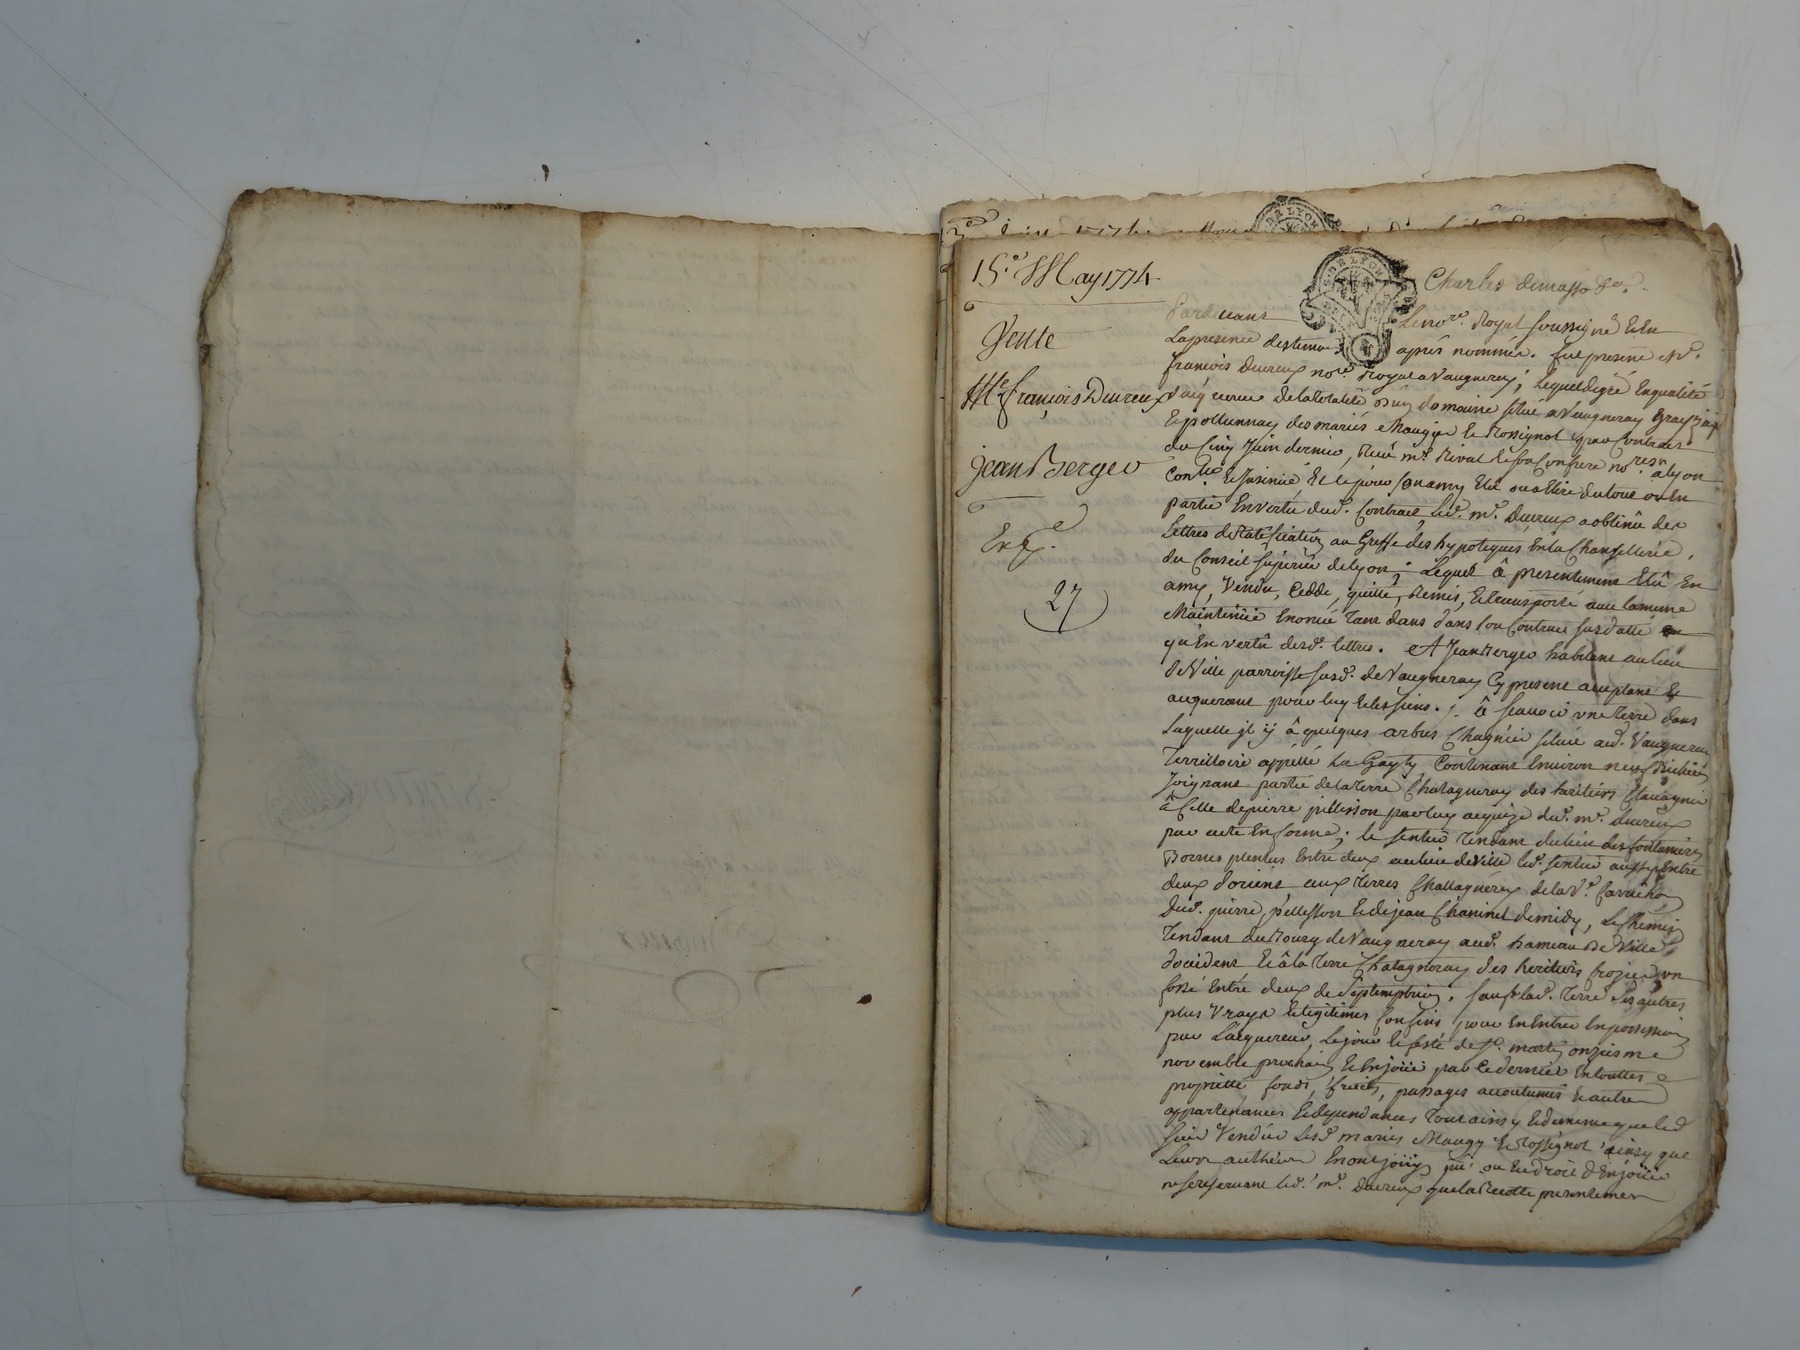 15.e May 1774.
Vente
Me. françois Duvreux
Jean Berger
Exp.
27
DE LYON
Charles demasso &a.
Pardevant Le nore. Royal soussigné Et En
La presence des temoins après nommés. fut present Me.
françois duvreux nore. Royal a Vaugneray; Lequel de gré En qualité
d'aquereur de la totalité d'un domaine situé a Vaugneray
Et pollionnay des mariés Maugy Et Rossignol par Contract
du Cinq Juin dernier, Receu me. Rival Et son Confrere nores. a lyon
Conlle. Et Insinué Et le pour son amy Elû ou a Elire du tout ou En
partie En vertû dud. Contract, led. me. duvreux a obtenû des
Lettres de Ratification au Greffe des hypoteques En la Chancellerie
du Conseil superieur de lyon; Lequel â presentement Elû En
amy, Vendu, Ceddé, quitté, Remis, Et transporté avec la meme
Maintenüe Enoncée tant dans son Contract susdatté
qu'En vertû desd. lettres. A Jean Berger habitant au lieu
de Ville parroisse susd. de Vaugneray Cy present acceptant Et
aquerant pour luy Et les siens. â scavoir une terre dans
Laquelle il y â quelques arbres Chagnier située aud. Vaugneray
territoire appellé Contenant Environ neuf Bicherées
Joignant partie de la terre Chatagneray des heritiers
â Celle de pierre pellisson par luy acquise dud. me. duvreux
par acte En forme; le sentier tendant du lieu des fontanieres
Bornes plantées Entre deux au lieu de Ville led. sentier aussy Entre
deux d'orient, aux terres Chatagnerey de la Ve.
dud. pierre pellisson Et de jean Chaninel de midy, Le Chemin
tendant du Bourg de Vaugneray aud. hameau de Ville
d'occident Et â la terre Chatagneray des heritiers un
fossé Entre deux de Septemptrion. sauf lad. terre ses autres
plus vrays Et legitimes Confins, pour En Entrer En possession
par L'acquereur, Le jour Et feste de St. martin onzieme
novembre prochain Et En joüir par Ce dernier En toutte
proprieté, fonds, fruits, passages accoutumés Et autres
appartenances Et dependances tout ainsy Et de meme que led
sieur Vendeur Lesd mariés Maugy Et Rossignol ainsy que
Leurs autheurs En ont joüy, pû ou Eu droit d'En joüir
se reservant led. me. duvreux que la Recolte presentement